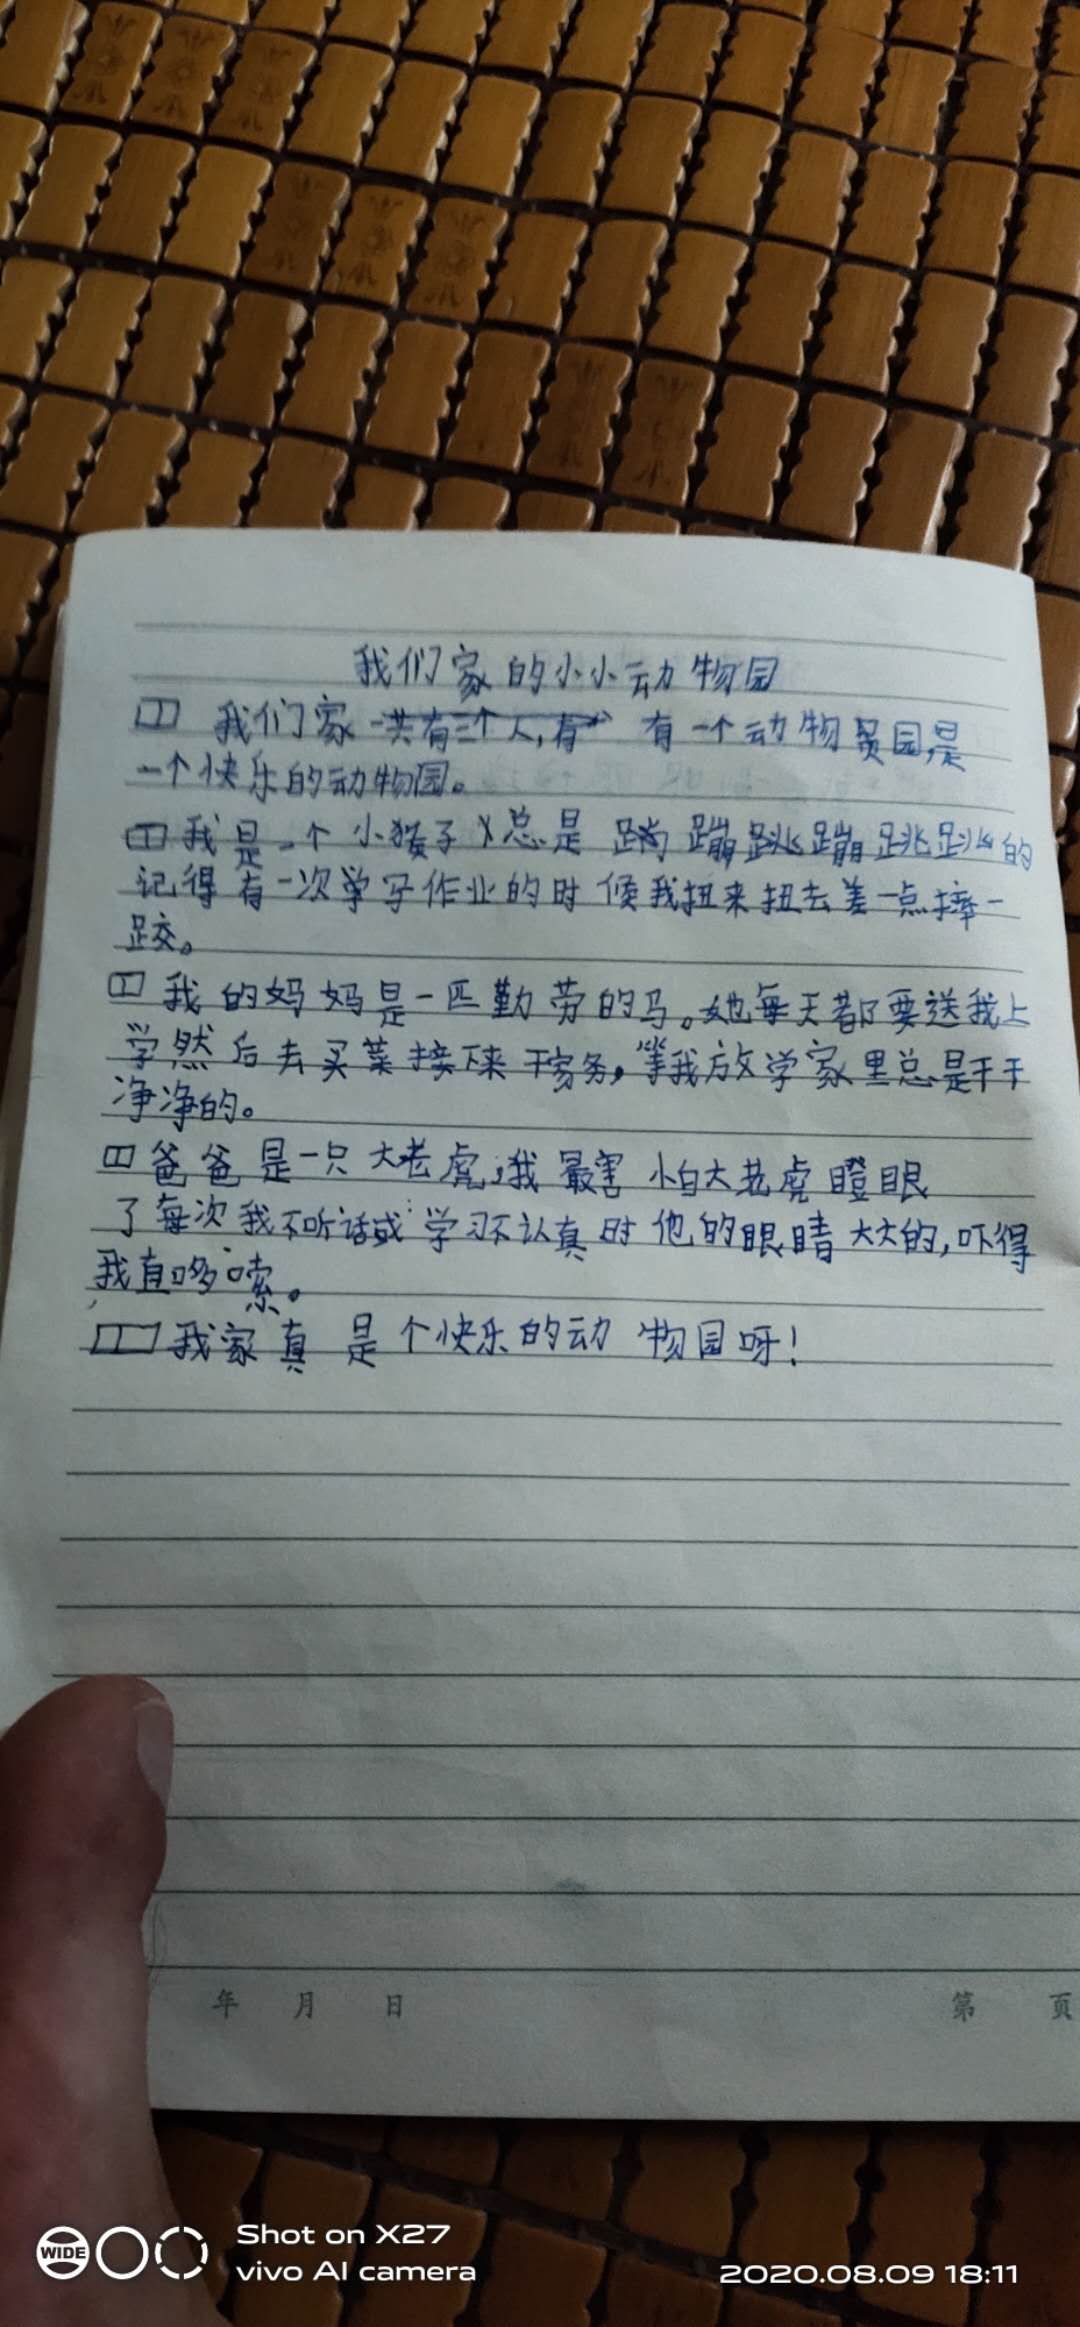 我们家的小小动物园
我们家一共有三个人,有 有一个动物园,是
一个快乐的动物园。
我是一个小猴子总是 蹦跳蹦跳跳的
记得有一次学写作业的时候我扭来扭去差一点摔一
跤。
我的妈妈是一匹勤劳的马。她每天都要送我上
学然后去买菜接下来干家务,等我放学家里总是干干
净净的。
爸爸是一只大老虎,我最害怕大老虎瞪眼
了每次我不听话或学习不认真时他的眼睛大大的,吓得
我直哆嗦。
我家真是个快乐的动物园呀!
年 月 日 第 页
WIDE
Shot on X27
vivo AI camera
2020.08.09 18:11